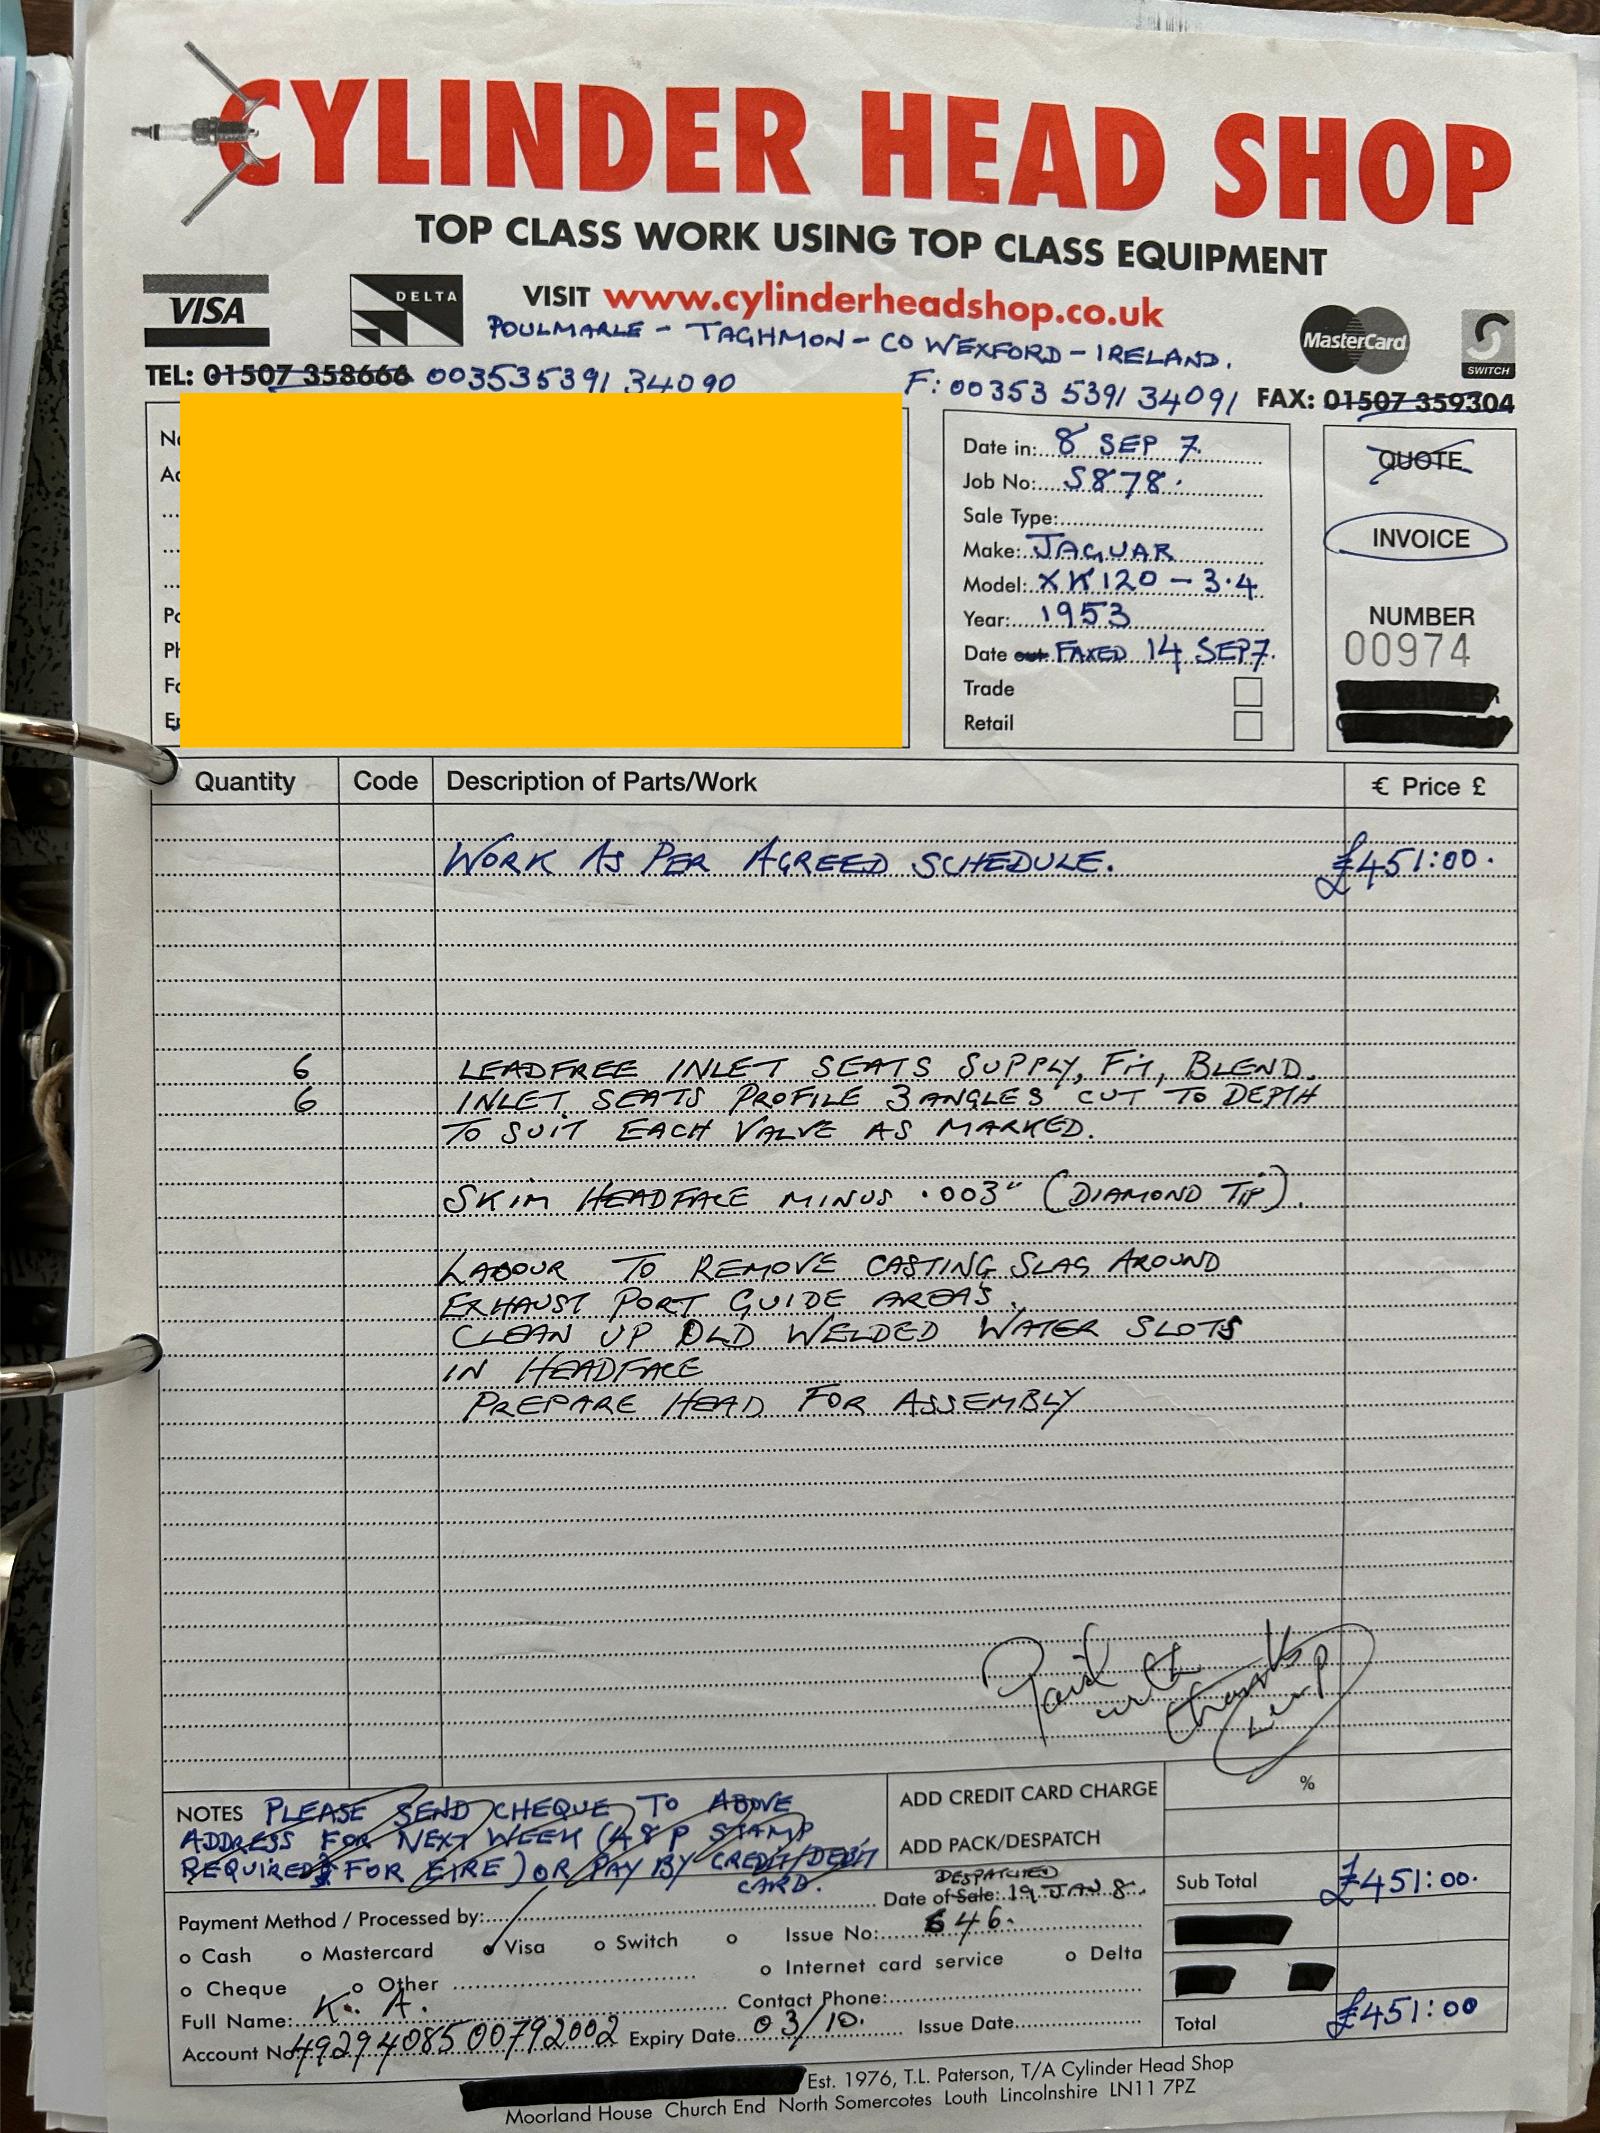 CYLINDER HEAD SHOP
TOP CLASS WORK USING TOP CLASS EQUIPMENT
VISA
DELTA
VISIT www.cylinderheadshop.co.uk
MasterCard
SWITCH
POULMARLE - TAGHMON - CO WEXFORD - IRELAND.
TEL: 01507 358666 003535391 34090 F: 00353 5391 34091 FAX: 01507 359304
Date in: 8 SEP 7.
Job No: S878.
Sale Type:
Make: JAGUAR
Model: XK120 - 3.4
Year: 1953
Date out FAXED 14 SEP 7.
Trade
Retail
QUOTE
INVOICE
NUMBER
00974
Quantity Code Description of Parts/Work € Price £
WORK AS PER AGREED SCHEDULE. £451:00.
6 LEADFREE INLET SEATS SUPPLY, FIT, BLEND.
6 INLET SEATS PROFILE 3 ANGLES CUT TO DEPTH
TO SUIT EACH VALVE AS MARKED.
SKIM HEADFACE MINUS .003" (DIAMOND TIP).
LABOUR TO REMOVE CASTING SLAG AROUND
EXHAUST PORT GUIDE AREAS.
CLEAN UP OLD WELDED WATER SLOTS
IN HEADFACE
PREPARE HEAD FOR ASSEMBLY
Paid with thanks
NOTES PLEASE SEND CHEQUE TO ABOVE
ADDRESS FOR NEXT WEEK (48P STAMP
REQUIRED FOR EIRE) OR PAY BY CREDIT/DEBIT
CARD.
ADD CREDIT CARD CHARGE %
ADD PACK/DESPATCH
DESPATCHED
Date of Sale: 19 JAN 8.
Sub Total £451:00.
Payment Method / Processed by:
Issue No: 646.
Cash Mastercard Visa Switch
Internet card service Delta
Cheque Other
Full Name: K. A. Contact Phone:
Account No: 4929408500792002 Expiry Date 03/10. Issue Date
Total £451:00
Est. 1976, T.L. Paterson, T/A Cylinder Head Shop
Moorland House Church End North Somercotes Louth Lincolnshire LN11 7PZ